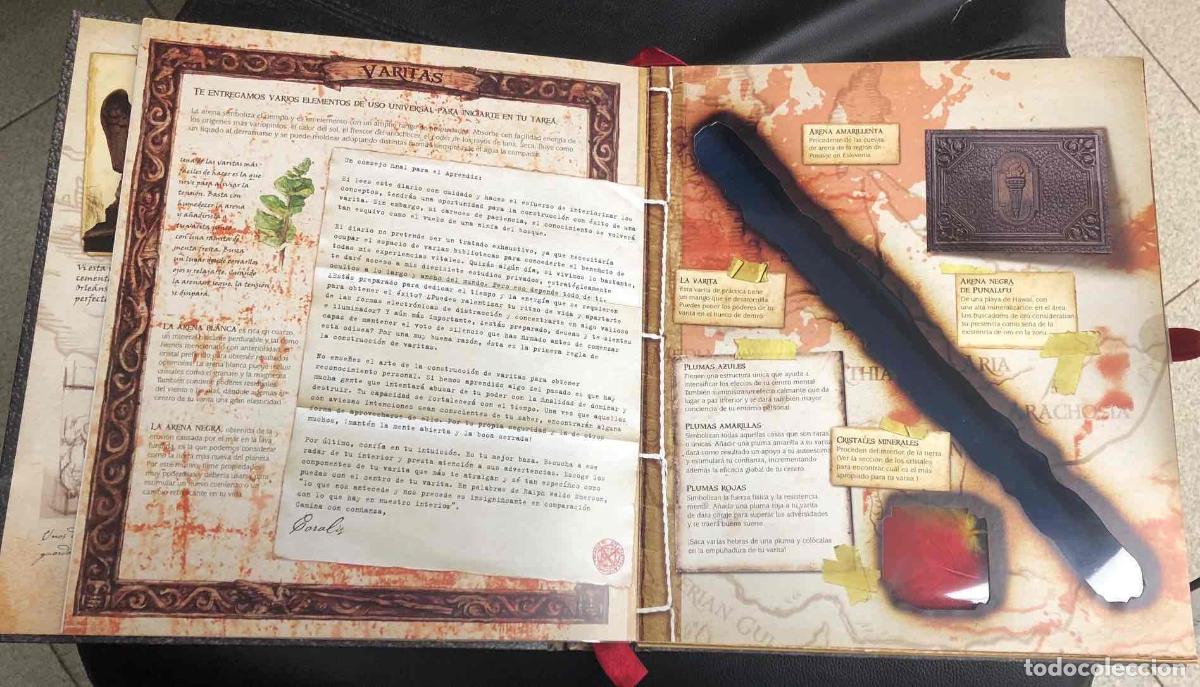 VARITAS
TE ENTREGAMOS VARIOS ELEMENTOS DE USO UNIVERSAL PARA INICIARTE EN TU TAREA.
La arena simboliza el tiempo y es un elemento con un amplio rango de propiedades. Absorbe con facilidad energía de
los orígenes más variopintos: el calor del sol, el frescor del anochecer, el poder de los rayos de luna. Seca, fluye como
un líquido al derramarse y se puede moldear adoptando distintas formas siempre que el agua la compacte.
Una de las varitas más
fáciles de hacer es la que
sirve para aliviar la
tensión. Basta con
humedecer la arena
y añadirle a
tu varita junto
con una ramita de
menta fresca. Busca
un lugar donde cerrar los
ojos y relajarte, cuando
la arena se seque, la tensión
se disipará.
LA ARENA BLANCA es rica en cuarzo,
un mineral
cristal
También
centro de tu varita una gran elasticidad
LA ARENA NEGRA, obtenida de la
erosión causada por el mar en la lava
fundida, es la que podemos considerar
como la arena más nueva del planeta.
Por este motivo tiene propiedades
muy poderosas y deberás usarla para
estimular un nuevo comienzo o un
cambio refrescante en tu vida.
Un consejo final para el Aprendiz:
Si lees este diario con cuidado y haces el esfuerzo de interiorizar los
conceptos, tendrás una oportunidad para la construcción con éxito de una
varita. Sin embargo, si careces de paciencia, el conocimiento se volverá
tan esquivo como el vuelo de una ninfa del bosque.
El diario no pretende ser un tratado exhaustivo, ya que necesitaría
ocupar el espacio de varias bibliotecas para concederte el beneficio de
todas mis experiencias vitales. Quizás algún día, si vivimos lo bastante,
te daré acceso a mis diecisiete estudios privados, estratégicamente
ocultos a lo largo y ancho del mundo. Pero eso depende todo de ti.
¿Estás preparado para dedicar el tiempo y la energía que se requieren
para obtener el éxito? ¿Puedes ralentizar tu ritmo de vida y apartarte
de las formas electrónicas de distracción y concentrarte en algo valioso
e iluminador? Y aún más importante, ¿estás preparado, deseas y te sientes
capaz de mantener el voto de silencio que has firmado antes de comenzar
esta odisea? Por una muy buena razón, ésta es la primera regla de
la construcción de varitas.
No enseñes el arte de la construcción de varitas para obtener
reconocimiento personal. Si hemos aprendido algo del pasado es que hay
mucha gente que intentará abusar de tu poder con la finalidad de dominar y
destruir. Tu capacidad se fortalecerá con el tiempo. Una vez que aquellos
con aviesas intenciones sean conscientes de tu saber, encontrarán alguna
forma de aprovecharse de ello. Por tu propia seguridad y la de otros
muchos, ¡mantén la mente abierta y la boca cerrada!
Por último, confía en tu intuición. Es tu mejor baza. Escucha a ese
radar de tu interior y presta atención a sus advertencias. Escoge los
componentes de tu varita que más te atraigan y sé tan específico como
puedas con el centro de tu varita. En palabras de Ralph Waldo Emerson,
"lo que nos antecede y nos precede es insignificante en comparación
con lo que hay en nuestro interior".
Camina con confianza,
Coralis
ARENA AMARILLENTA
Procedente de las cuevas
de arena de la región de
Posavje en Eslovenia
LA VARITA
Esta varita de práctica tiene
un mango que se desatornilla.
Puedes poner los poderes de tu
varita en el hueco de dentro
ARENA NEGRA
DE PUNALUU
De una playa de Hawai, con
una alta mineralización en el área.
Los buscadores de oro consideraban
su presencia como seña de la
existencia de oro en la zona
PLUMAS AZULES
Tienen una estructura única que ayuda a
intensificar los efectos de tu centro mental
También suministra un efecto calmante que da
lugar a paz interior y te dará también mayor
conciencia de tu entorno personal
PLUMAS AMARILLAS
Simbolizan todas aquellas cosas que son raras
o únicas. Añadir una pluma amarilla a tu varita
dará como resultado un apoyo a tu autoestima
y estimulará tu confianza, incrementando
además la eficacia global de tu centro.
PLUMAS ROJAS
Simbolizan la fuerza física y la resistencia
mental. Añadir una pluma roja a tu varita
te dará coraje para superar las adversidades
y te traerá buena suerte.
¡Saca varias hebras de una pluma y colócalas
en la empuñadura de tu varita!
CRISTALES MINERALES
Proceden del interior de la tierra
(Ver la sección de los cristales
para encontrar cuál es el más
apropiado para tu varita.)
RACHOSIA
ERIAN GU
todocoleccion